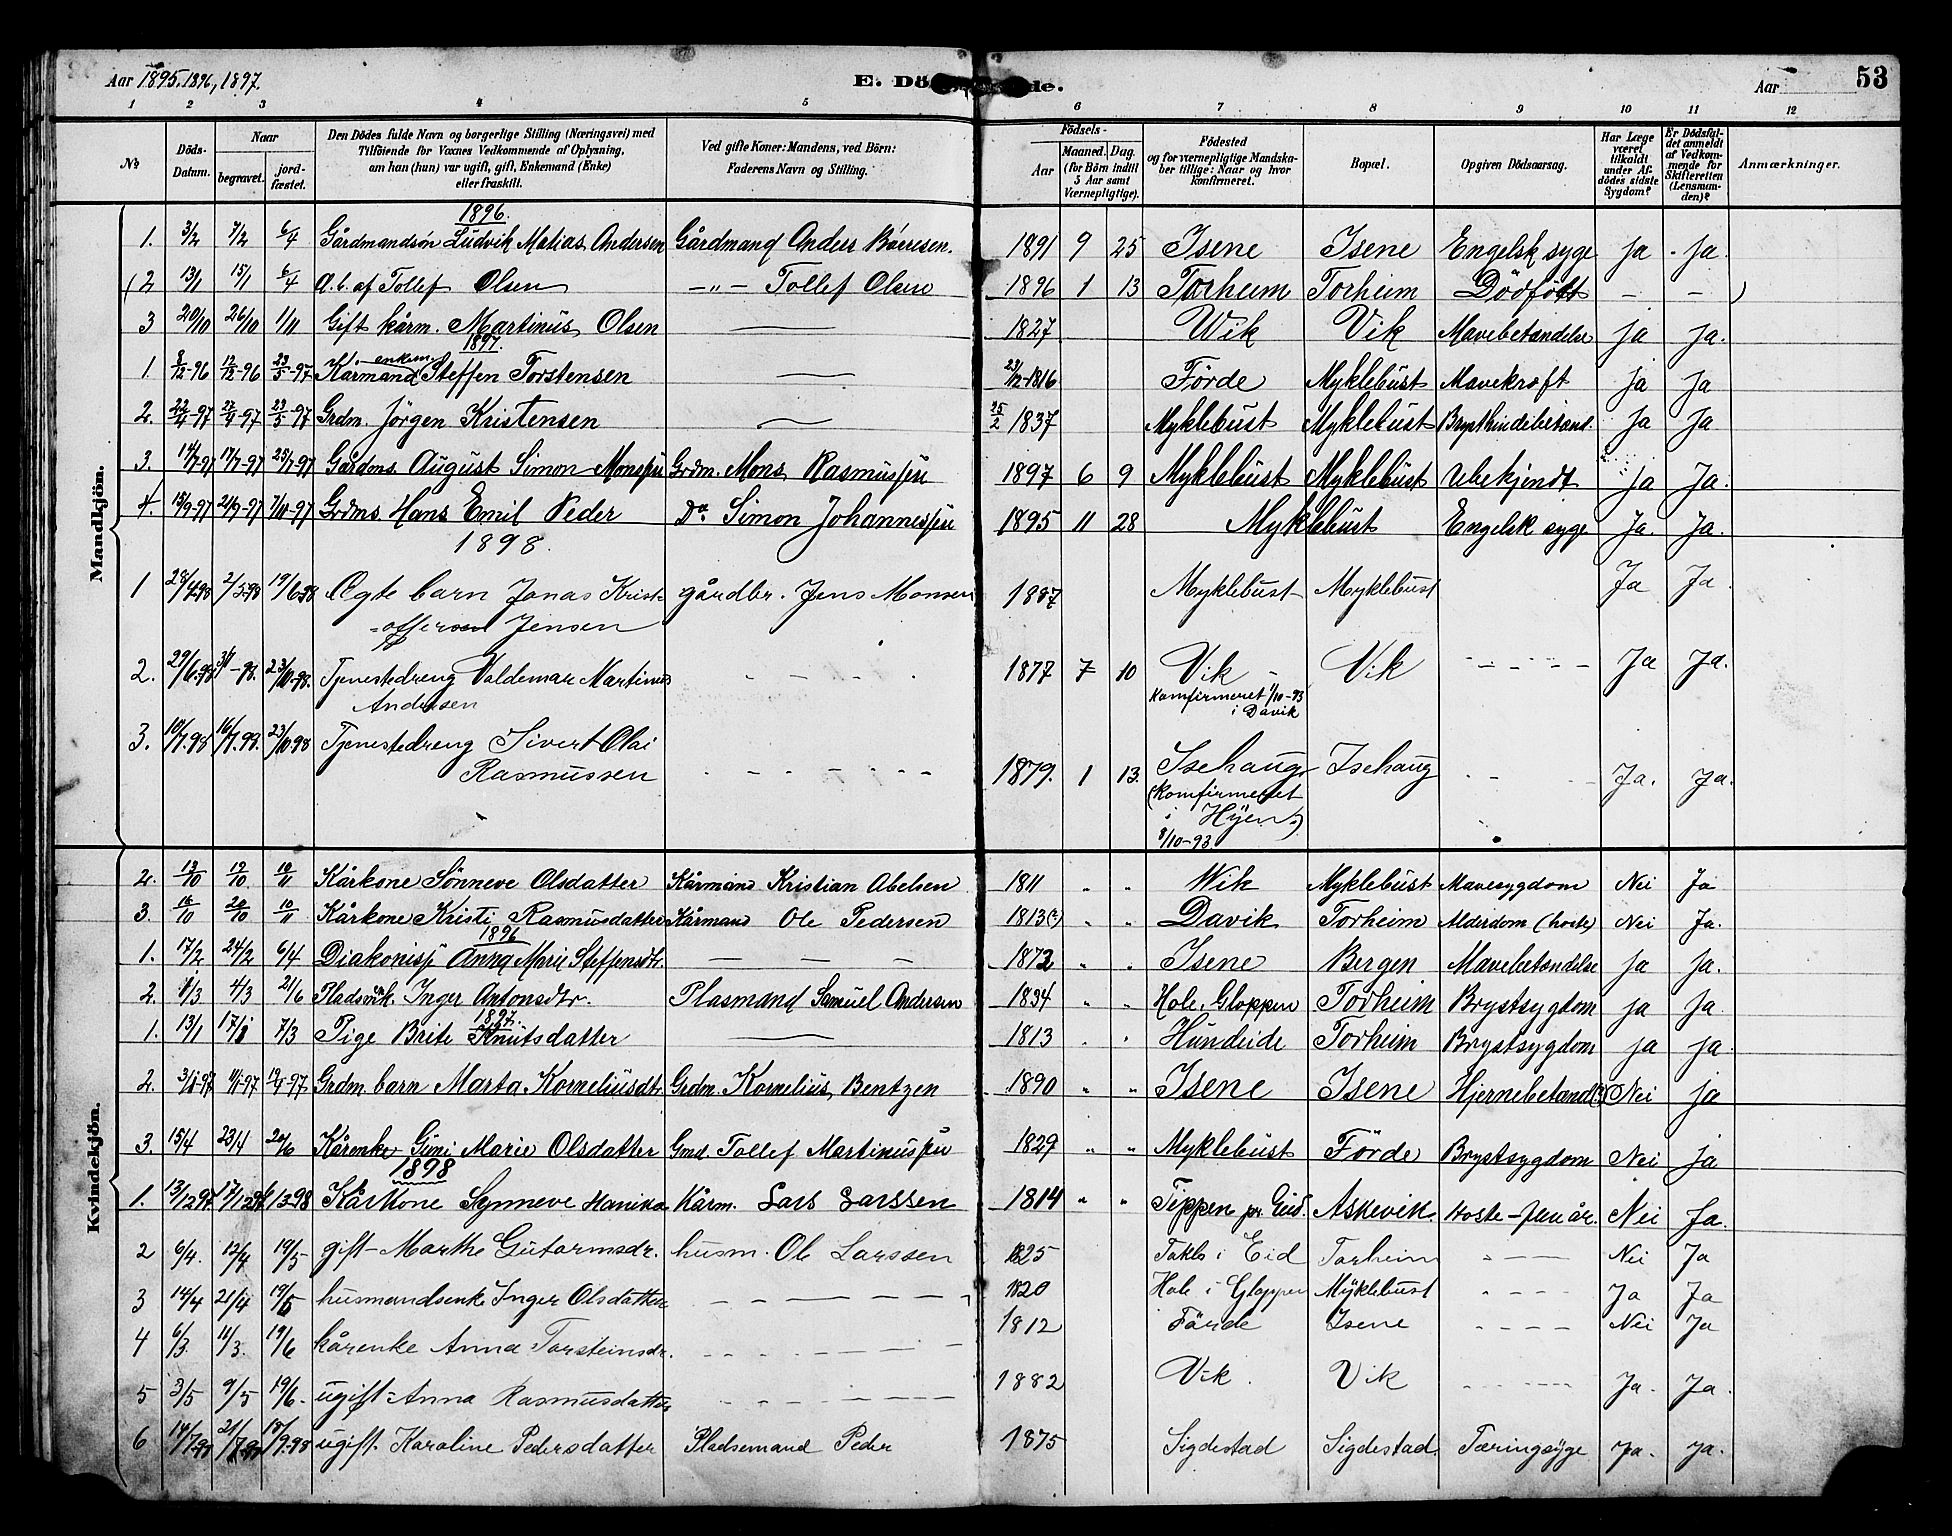 Aar 1895. 1896, 1897.
E. Dö de.
Aar 53
1 2 3 4 5 6 7 8 9 10 11 12
No
Döds-Datum.
Naar
begravet.
jord-fæstet.
Den Dödes fulde Navn og borgerlige Stilling (Næringsvei) med
Tilföiende for Voxnes Vedkommende af Oplysning,
om han (hun) var ugift, gift, Enkemand (Enke)
eller fraskilt.
Ved gifte Koner: Mandens, ved Börn:
Faderens Navn og Stilling.
Födsels-
Aar
Maaned. Dag.
(for Börn indtil
5 Aar samt
Værnepligtige).
Födested
og for værnepligtige Mandska-
ber tillige: Naar og hvor
konfirmeret.
Bopæl.
Opgiven Dödsaarsag.
Har Læge
været
tilkaldt
under Af-
dödes sidste
Sygdom?
Er Dödsfal-
det anmeldt
af Vedkom-
mende for
Skifteretten
(Lensman-
den)?
Anmærkninger.
Mandkjön.
1896.
1. 3/2 7/2 6/4 Gårdmandsön Ludvik Matias Andersen Gårdmand Anders Börresen. 1891 9 25 Isene Isene Engelsk syge Ja Ja.
(2 13/1 15/1 6/4 a. b. af Tollef Olsen —„— Tollef Olsen 1896 1 13 Torheim Torheim Dödfödt — — )
3 20/10 26/10 1/11 Gift kårm. Martinus Olsen — 1827 Wik Vik Mavebetændelse ja ja.
1897.
1 8/12-96 12/12-96 23/5-97 Kårmand enkem. Steffen Torstensen — 23/12-1816 Förde Myklebust Mavekræft ja ja
2. 22/4-97 27/4-97 23/5-97 Grdm. Jörgen Kristensen — 25/2 1837 Myklebust Myklebust Brysthindebetænd. ja ja
3. 14/7-97 17/7-97 25/7-97 Gårdms. August Simon Monssen Grdm. Mons Rasmussen 1897 6 9 Myklebust Myklebust Ubekjendt ja Ja.
4. 15/9-97 21/9-97 7/11-97 Grdms. Hans Emil Peder Do. Simon Johannessen 1895 11 28 Myklebust Engelsk syge Ja. Ja.
1898.
1 28/4.98 2/5.98 19/6.98 Ægte barn Jonas Krist- gårdbr. Jens Monsen 1897 Myklebust Myklebust Ja Ja.
=offersen Jensen
2. 29/6.98 -98. 23/10.98. Tjenestedreng Valdemar Martinus - - - - 1877 7 10 Vik - Vik - - - - - Ja Ja.
Andersen
Komfirmeret 1/10-93
i Davik
3. 10/7.98 16/7.98. 23/10.98 Tjenestedreng Sivert Olai
Rasmussen - - - - - - 1879. 1 13. Isehaug Isehaug - - - Ja. Ja.
(Komfirmeret
i Hyen)
8/10-93.
Kvindekjön.
2. 12/10 19/10 10/11 Kårkone Sönneve Olsdatter Kårmand Kristian Abelsen 1811 „ „ Wik Myklebust Mavesygdom Nei Ja
3. 16/10 20/10 10/11 Kårkone Kristi Rasmusdatter Kårmand Ole Pedersen 1813(?) „ „ Davik Torheim Alderdom (hoste) Nei Ja.
1896
1. 17/2 24/2 6/4 Diakonisse Anna Marie Steffensdtr. — — — 1872 „ „ Isene Bergen Mavebetændelse ja ja.
2. 1/3 4/3 21/6 Inger Antonsdtr. Plasmand Samuel Andersen 1834 „ „ Hole, Gloppen Torheim Brystsygdom ja ja.
1897.
1. 13/1 17/1 7/3 Pige Brite Knutsdatter — 1813 „ „ Hundeide Torheim Brystsygdom ja ja
2. Grdm. barn Marta Korneliusdtr. Grdm. Kornelius Bentzen 1890 „ „ Isene Isene Hjernebetænd(?) Nei ja
3. 15/4 23/4 20/6 Kårenke Guni Marie Olsdatter Gmd. Tollef Martinussen 1829 „ „ Myklebust Förde Brystsygdom Nei ja
1898
1. 13/12 97 Kårkone Synneve Hanika Kårm. Lars Larssen 1814 „ „ Tippen pr. Eid. Askevik. Hoste - flere år. Nei Ja.
2 6/4. 12/4 19/5 gift - Marthe Gutormsdr. husm. Ole Larssen 1825 Taklo i Eid Torheim - — Nei Ja
3 14/4 21/4 19/5 husmandsenke Inger Olsdatter - — - — - — 1820 Hole i Gloppen Myklebust - - - - Ja Ja
4 6/3. 11/3. 19/6 kårenke Anna Torsteinsdr. - - - - — 1812 Förde Isene - - - - Nei Ja
5 3/5 9/5 19/6. ugift - Anna Rasmusdatter - - - — 1882 Vik. Vik - - - - Ja. Ja.
6 14/7.98 21/7.98 18/9.98 ugift. Karoline Pedersdatter Pladsemand Peder 1875 Sigdestad Sigdestad. Tæringsyge Ja. Ja.